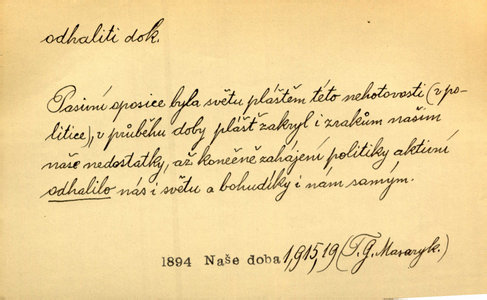 odhaliti dok.
Pasivní oposice byla světu pláštěm této nehotovosti (v po-
litice), v průběhu doby plášť zakryl i zrakům našim
naše nedostatky, až konečně zahájení politiky aktivní
odhalilo nás i světu a bohudíky i nám samým.
1894 Naše doba 1,915,19 (T. G. Masaryk.)